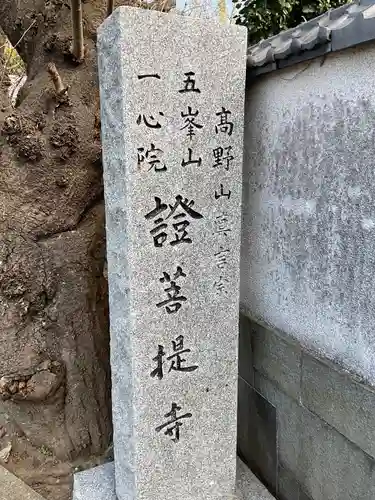 高野山真言宗
五峯山
一心院
證菩提寺